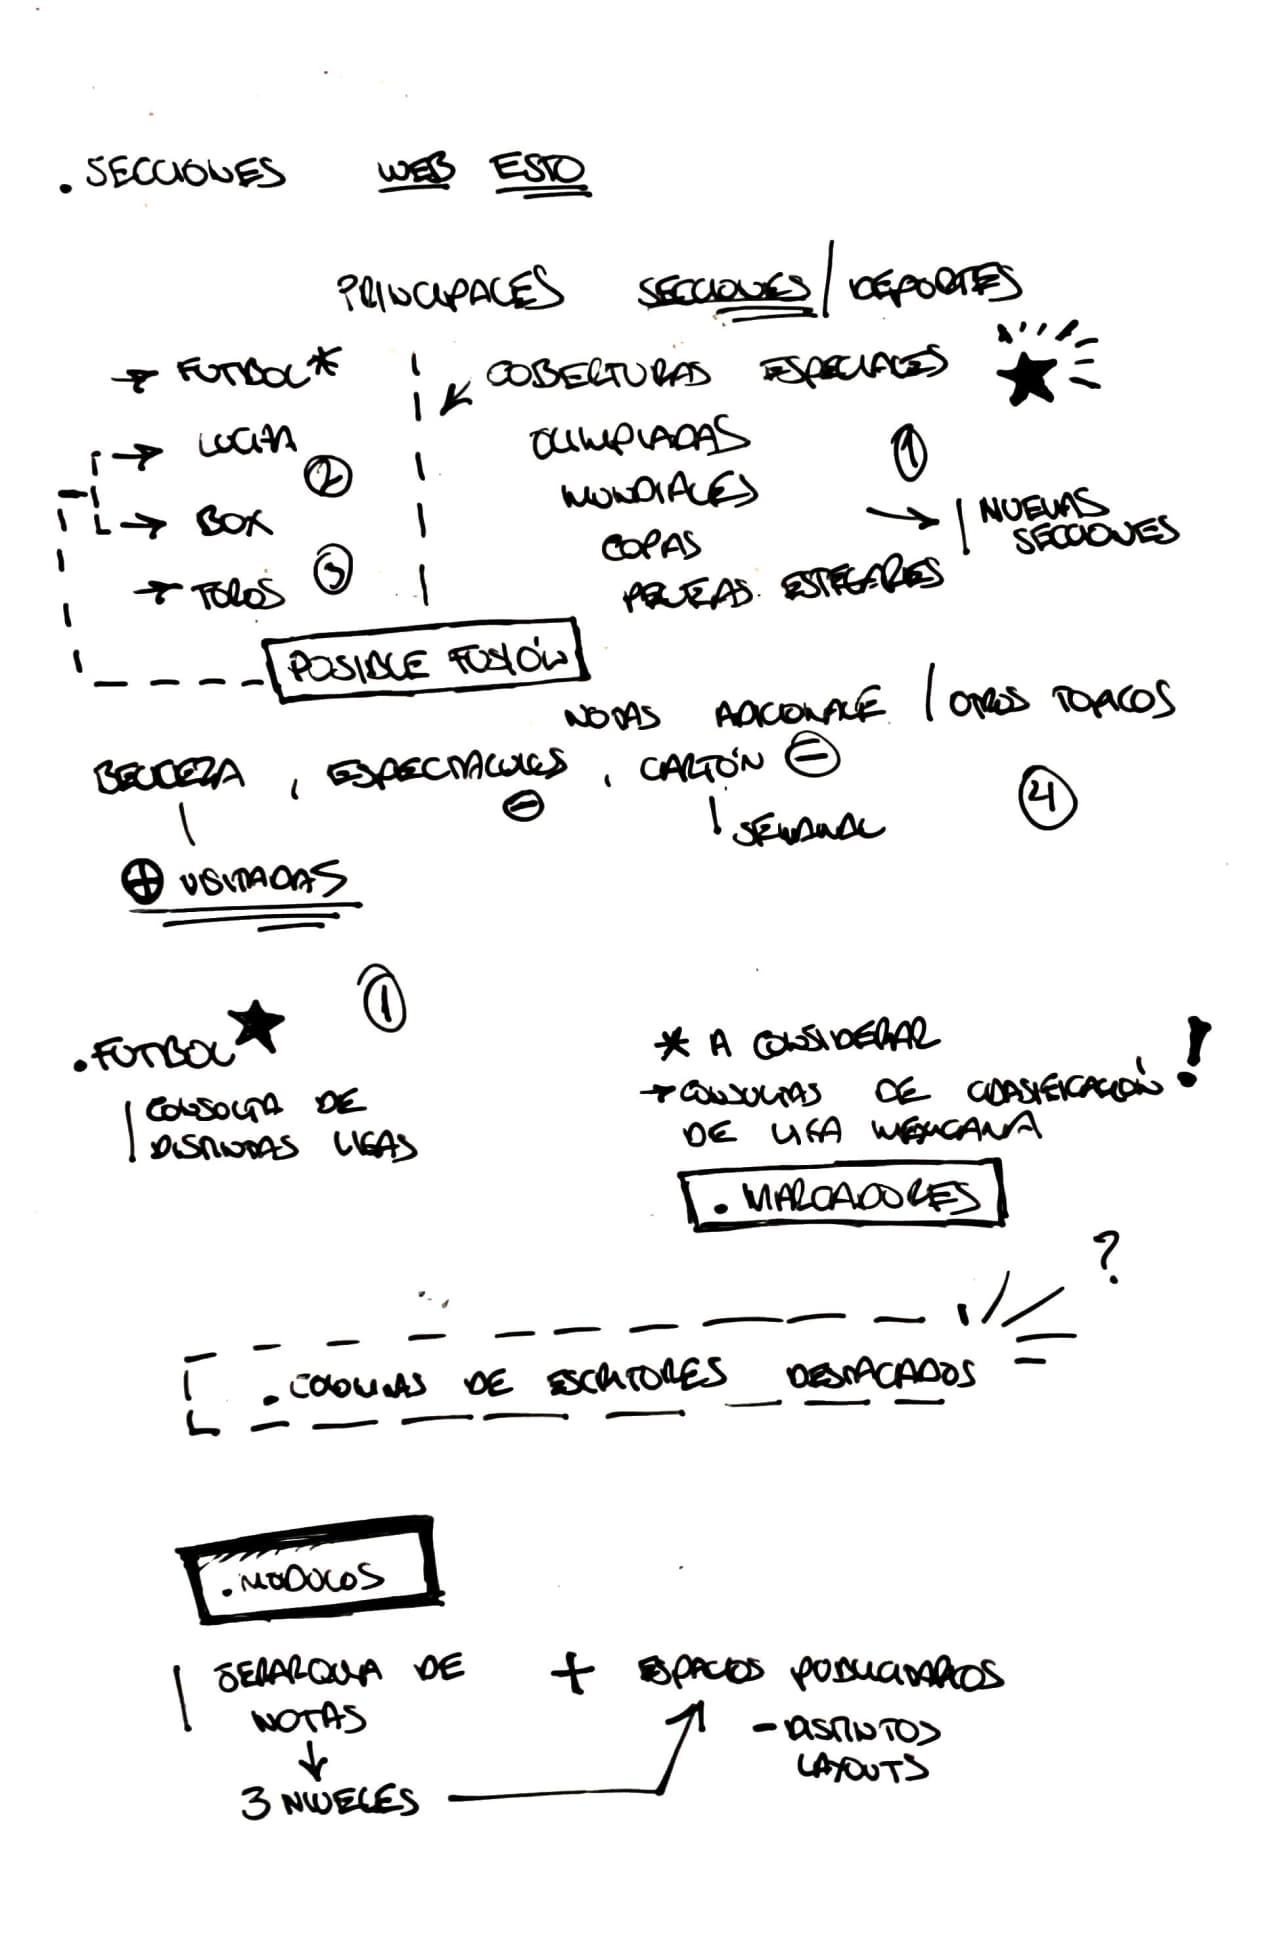 . SECCIONES WEB ESTO
PRINCIPALES SECCIONES / DEPORTES
→ FUTBOL*
COBERTURAS ESPECIALES
→ LUCHA
OLIMPIADAS
①
②
MUNDIALES
→ BOX
→ | NUEVAS
SECCIONES
COPAS
→ TOROS ③
PELEAS ESTELARES
POSIBLE FUSIÓN
NOTAS ADICIONALE / OTROS TOPICOS
BELLEZA , ESPECTACULOS , CARTÓN ⊖
⊖
④
SEMANAL
⊕ VISITADAS
①
. FUTBOL ★
* A CONSIDERAR
| CONSULTA DE
DISTINTAS LIGAS
→ CONSULTAS DE CLASIFICACIÓN !
DE LIGA MEXICANA
. MARCADORES
?
. COLUMNAS DE ESCRITORES DESTACADOS
. MODULOS
| JERARQUIA DE
NOTAS
↓
3 NIVELES
+ ESPACIOS PUBLICIDARIOS
- DISTINTOS
LAYOUTS